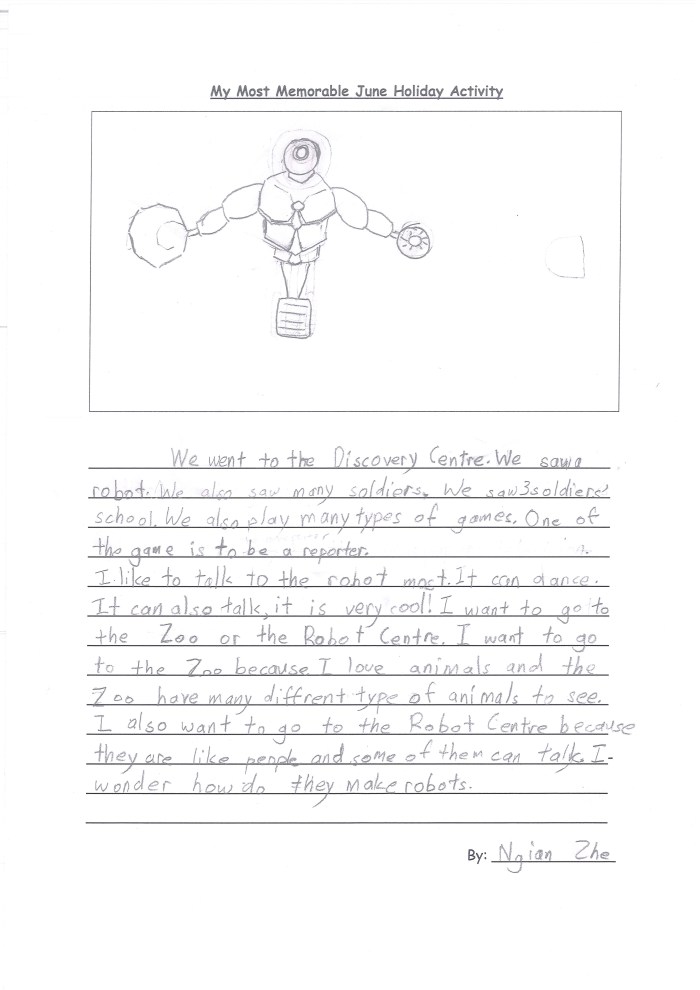 My Most Memorable June Holiday Activity
We went to the Discovery Centre. We saw a
robot. We also saw many soldiers. We saw 3 soldiers'
school. We also play many types of games. One of
the game is to be a reporter.
I like to talk to the robot most. It can dance.
It can also talk, it is very cool! I want to go to
the Zoo or the Robot Centre. I want to go
to the Zoo because I love animals and the
Zoo have many diffrent type of animals to see.
I also want to go to the Robot Centre because
they are like people and some of them can talk. I
wonder how do they make robots.
By: Ngian Zhe